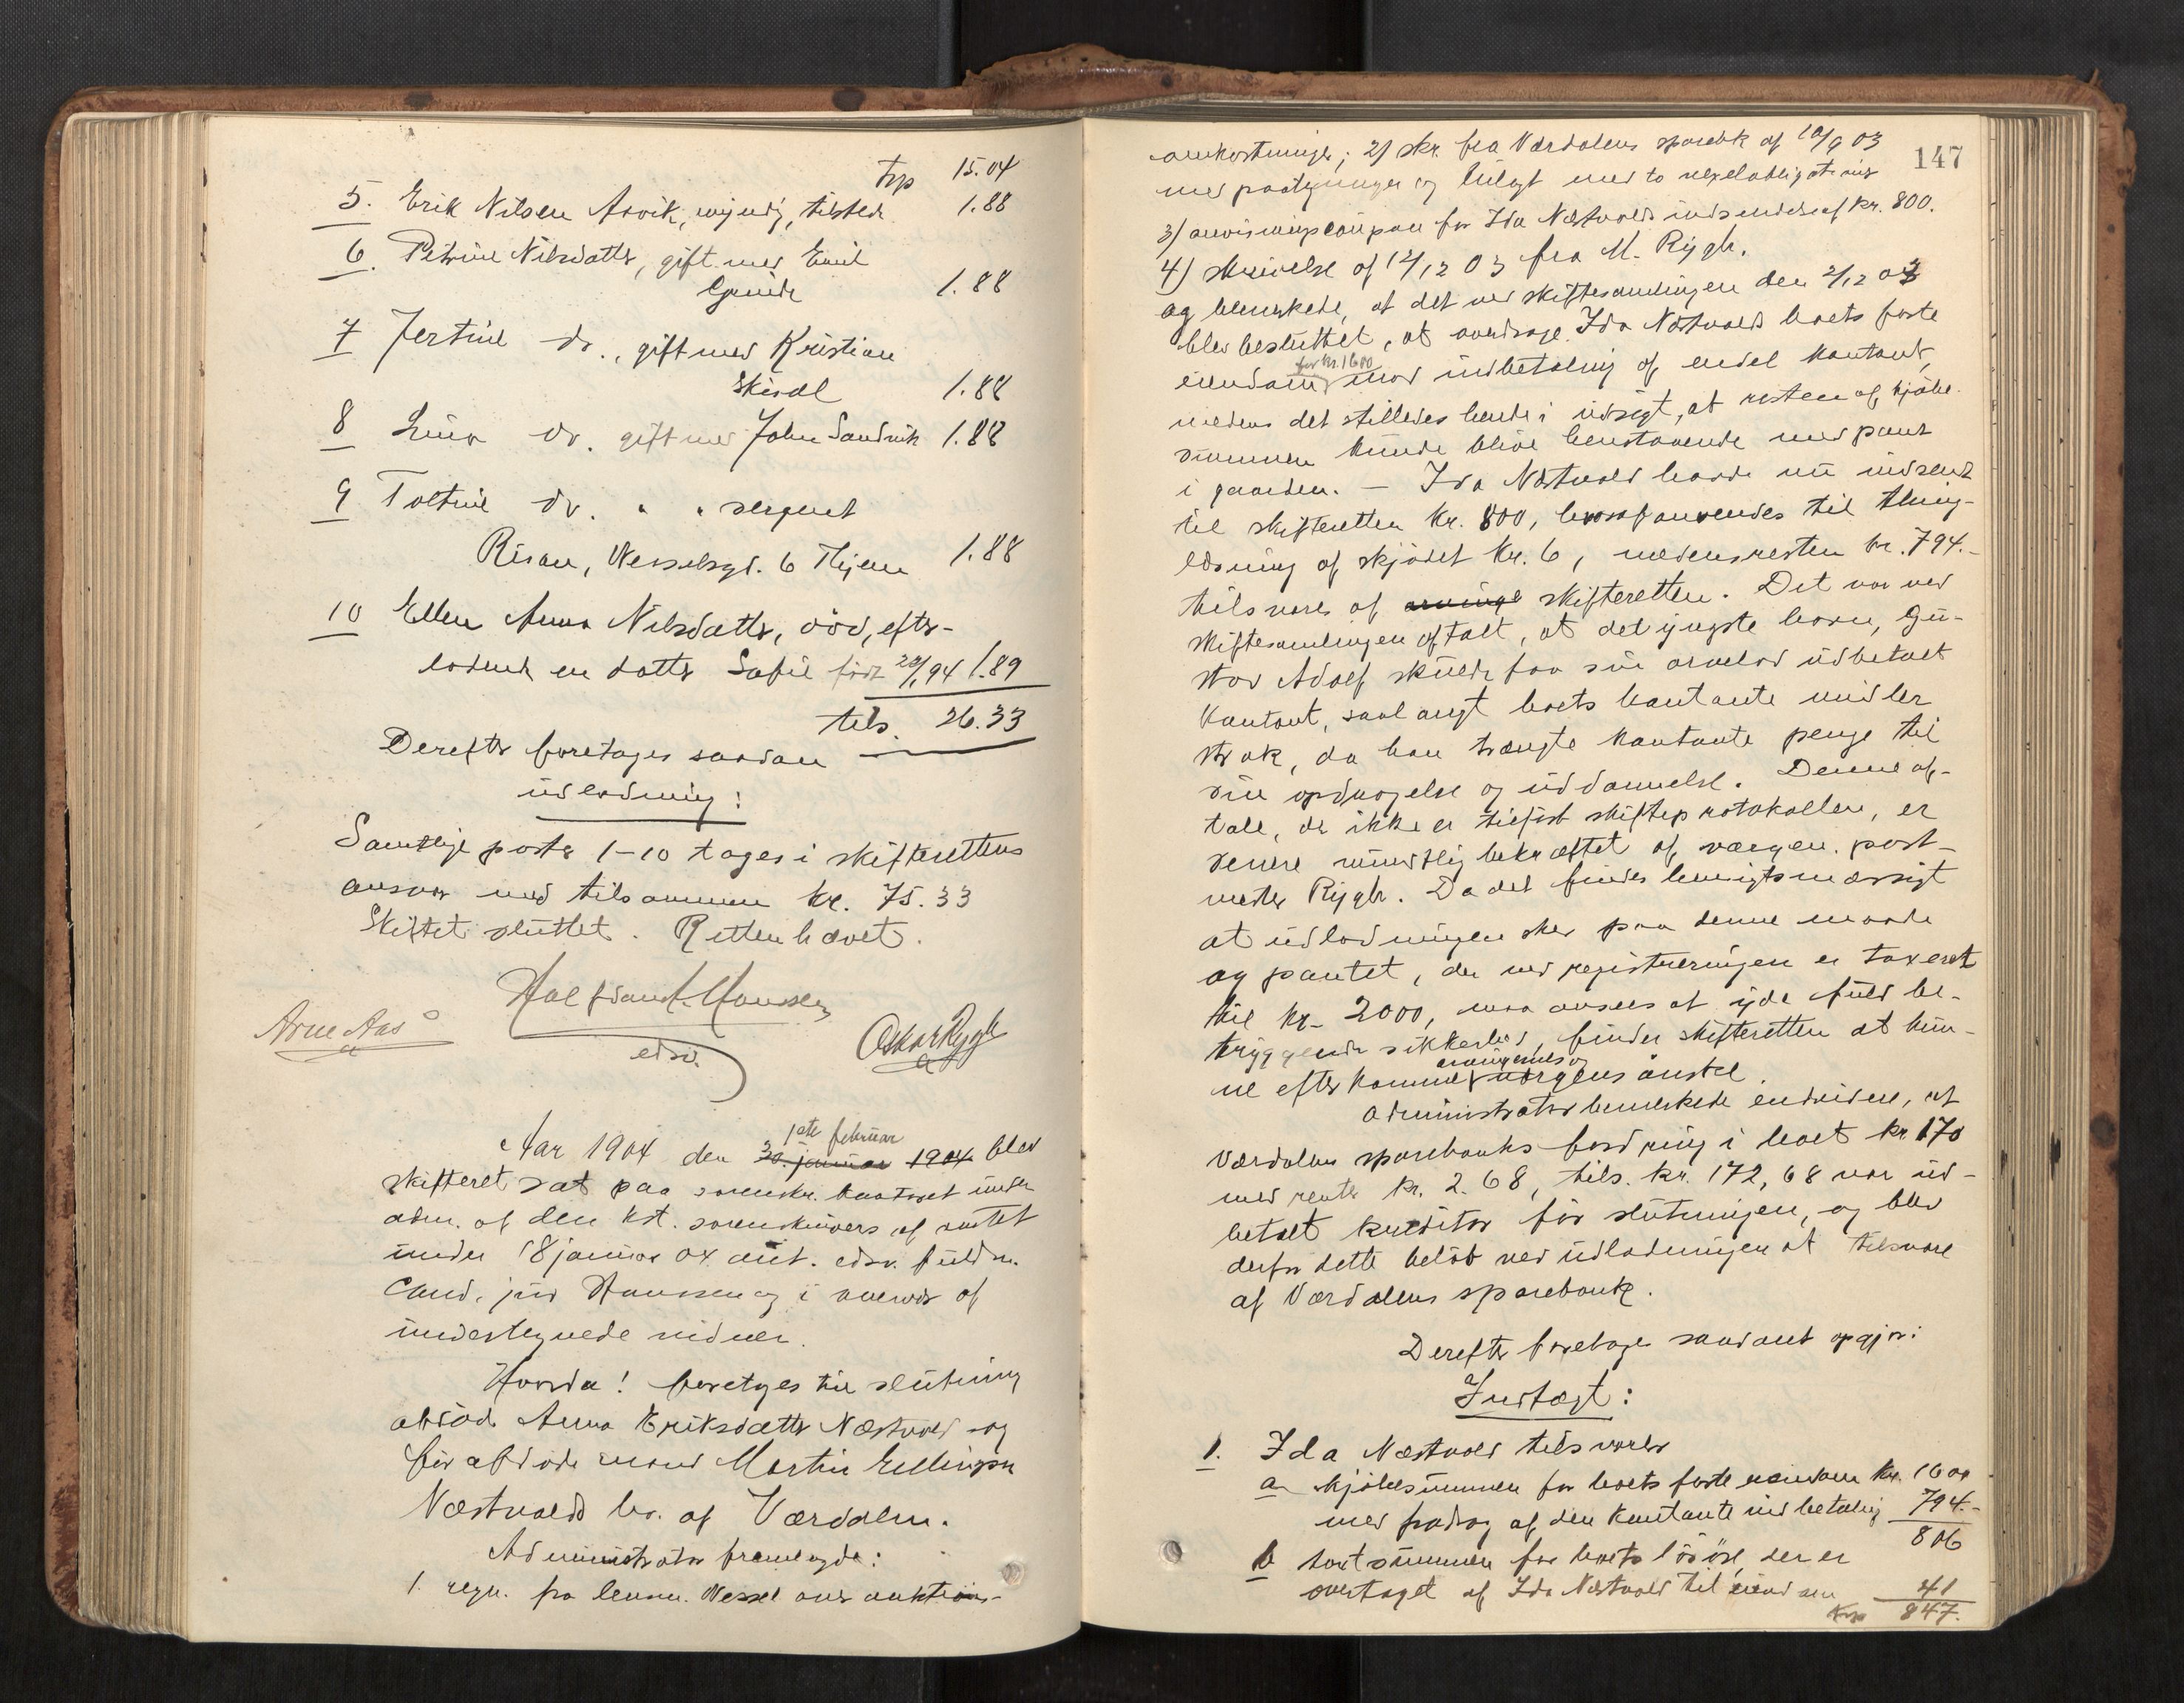 Trp 15.04
5. Erik Nilsen Aavik, myndig, tilstede 1.88
6. Petrine Nilsdatter, gift med Emil
1.88
7 Jertine do., gift med Kristian
Skirdl 1.88
8 Lina do. gift med John Sandvik 1.88
9 " " sergent
Risan, Wesselsgd. 6 Thjem 1.88
10 Ellen Anna Nilsdatter, död, efter-
ladende en datter Sofie född 94 1.89
tils. 26.33
Derefter foretages saadan
udlodning:
Samtlige poster 1-10 tages i skifterettens
ansvar med tilsammen kr. 75.33
Skiftet sluttet. Retten hævet.
Halfdan Hanssen
edsv.
Arne Aas
Oskar Rygh
Aar 1904 den 30. januar 1904 1ste februar blev
skifteret sat paa sorenskr. kontoret under
adm. af den kst. sorenskrivers af amtet
under 18 januar 04 aut. edsv. fuldm.
Cand. jur Hanssen og i nærvær af
undertegnede vidner.
Hvorda! foretoges til slutning
afdöde Anna Eriksdatter Næstvold og
för afdöde mand Martin Ellingsen
Næstvolds bo. af Værdalen.
Administrator fremlagde:
1. regn. fra lensm. Wessel over auktions-
147
omkostninger; 2) skr. fra Værdalens sparebk af 10/9 03
med paategninger og bilagt med to vexelobligationer
3) anvisningscoupon for Ida Næstvolds indsendelse af kr. 800.
4) skrivelse af 12/12 03 fra M. Rygh.
og bemerkede, at det ved skiftesamlingen den 2/12 03
blev besluttet, at overdrage Ida Næstvold boets faste
eiendom for kr. 1600 mod indbetaling af endel kontant,
medens det stilledes hende i udsigt, at resten af kjöbe-
summen kunde blive henstaaende med pant
i gaarden. – Ida Næstvold havde nu indsendt
til skifteretten kr. 800, hvoraf anvendes til thing-
læsning af skjödet kr. 6, medens resten kr. 794.-
tilsvares af arvinge skifteretten. Det var ved
skiftesamlingen aftalt, at det yngste barn, Gu-
stav Adolf skulde faa sin arvelod udbetalt
kontant, saalangt boets kontante midler
strak, da han trængte kontante penge til
sin opdragelse og uddannelse. Denne af-
tale, der ikke er tilfört skifteprotokollen, er
senere mundtlig bekræftet af værgen. post-
mester Rygh. Da det findes hensigtsmæssigt
at udlodningen sker paa denne maade
og pantet, der ved registreringen er taxeret
til kr. 2000, maa ansees at yde fuld be-
tryggende sikkerhed, finder skifteretten at kun-
ne efterkomme arvingernes og værgens önske.
Administrator bemerkede endvidere, at
Værdalens sparebanks fordring i boet kr 170
med renter kr. 2.68, tils. kr. 172,68 var ud-
betalt kreditor för slutningen, og blev
derfor dette belöb ved udlodningen at tilsvare
af Værdalens sparebank.
Derefter foretages saadant opgjör:
Indtægt:
1. Ida Næstvold tilsvarer
a kjöbesummen for boets faste eiendom kr. 1600
med fradrag af den kontante indbetaling 794.-
806
b taxtsummen for boets lösöre, der er
overtaget af Ida Næstvold til 41
Trp 847.